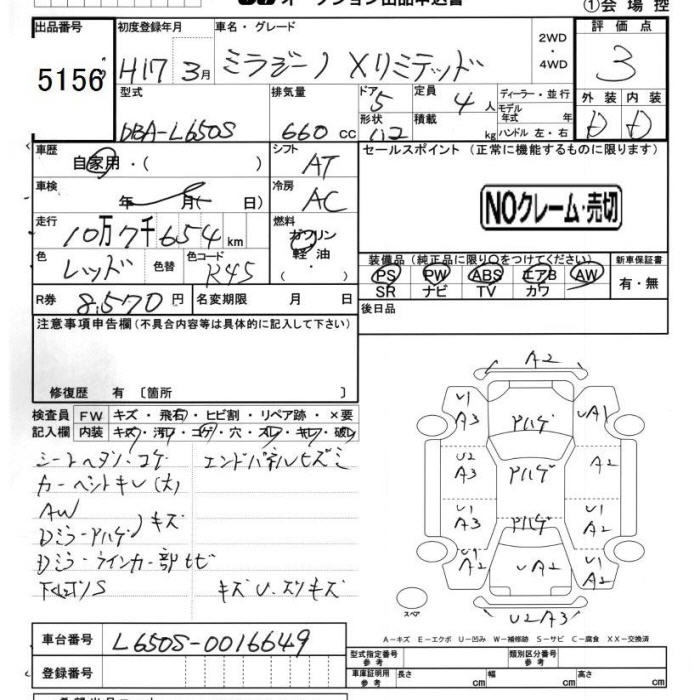 オークション出品申込書
①会場控
出品番号 初度登録年月 車名・グレード 評価点
5156 H17 3月 ミラジーノ Xリミテッド 2WD・4WD 3
型式 排気量 ドア 5 定員 4人 ディーラー・並行 外装 内装
DBA-L650S 660cc 形状 積載 kg モデル年式 年 ハンドル 左・右 D D
車歴 自家用・( ) シフト AT セールスポイント (正常に機能するものに限ります)
車検 年 月( 日) 冷房 AC
NOクレーム・売切
走行 10万7千654km 燃料 ガソリン 軽油・( )
色 レッド 色替 色コード R45
装備品 (純正品に限り○をつけてください) 新車保証書
PS PW ABS エアB AW 有・無
SR ナビ TV カワ
R券 8,570円 名変期限 月 日 後日品
注意事項申告欄(不具合内容等は具体的に記入して下さい)
修復歴 有 〔箇所 〕
検査員記入欄 FW キズ・飛石・ヒビ割・リペア跡・×要
内装 キズ・汚レ・コゲ・穴・スレ・キレ・破レ
シートヘタリ・コゲ エンドパネルヒズミ
カーペントキレ(大)
AW
Dミラーアハゲ キズ
Dミラーウインカー部ヒビ
下回リS キズU.スリキズ
A2
U1 A3 アハゲ UA1
U2 A3 アハゲ A2
A3 アハゲ U1 A2
U1 A2 UA2 U1 A2
スペア
U2A3
A−キズ E−エクボ U−凹み W−補修跡 S−サビ C−腐食 XX−交換済
車台番号 L650S-0016649
型式指定番号 参考 類別区分番号 参考
登録番号
車庫証明用 参考 長さ cm 幅 cm 高さ cm